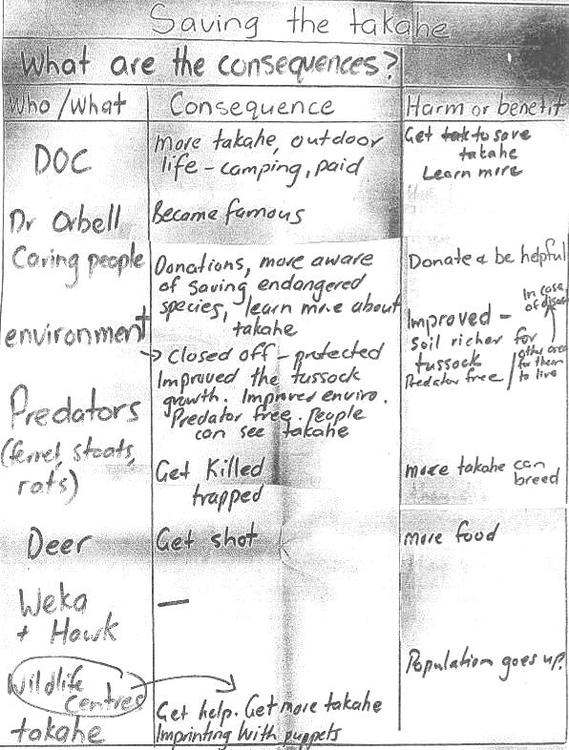 Saving the takahe
What are the consequences?
Who/What
Consequence
Harm or benefit
DOC
More takahe, outdoor
life - camping, paid
Get to save
takahe
Learn more
Dr Orbell
Became famous
Caring people
Donations, more aware
of saving endangered
species, learn more about
takahe
Donate & be helpful
environment
→ Closed off - protected
Improved the tussock
growth. Improves enviro.
Predator free. People
can see takahe
Improved -
soil richer for
tussock
Predator free
In case
of
other area
for them
to live
Predators
(ferret, stoats,
rats)
Get Killed
trapped
more takahe can
breed
Deer
Get shot
more food
Weka
+ Hawk
—
Wildlife
Centres
takahe
Get help. Get more takahe
Imprinting with puppets
Population goes up?